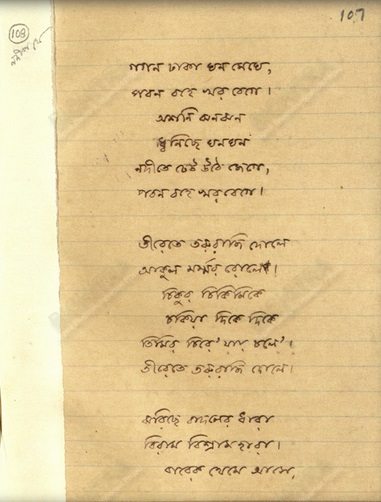 107
108
গগন ঢাকা ঘন মেঘে,
পবন বহে খর বেগে।
অশনি ঝনঝন
ধ্বনিছে ঘনঘন
নদীতে ঢেউ উঠে জেগে,
পবন বহে খর বেগে।
তীরেতে তরুরাজি দোলে
আকুল মর্ম্মর রোলে।
চিকুর চিকিমিকে
চকিয়া দিকে দিকে
তিমির চিরে' যায় চলে'।
তীরেতে তরুরাজি দোলে।
ঝরিছে বাদলের ধারা
বিরাম বিশ্রামহারা।
বারেক থেমে আসে,